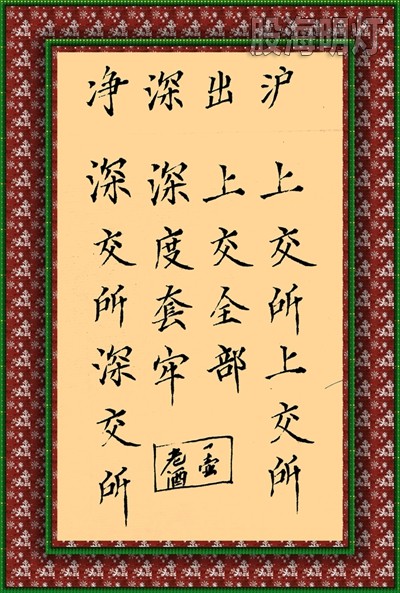 股海明灯
沪上交所上交所
出上交全部
深深度套牢
净深交所深交所
一壶
老酒